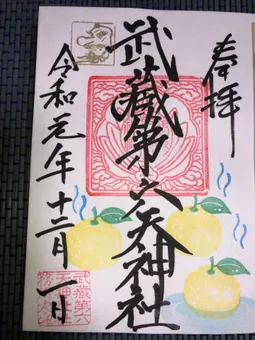 奉拝
武蔵第六天神社
令和元年十二月一日
武蔵第六
天神社